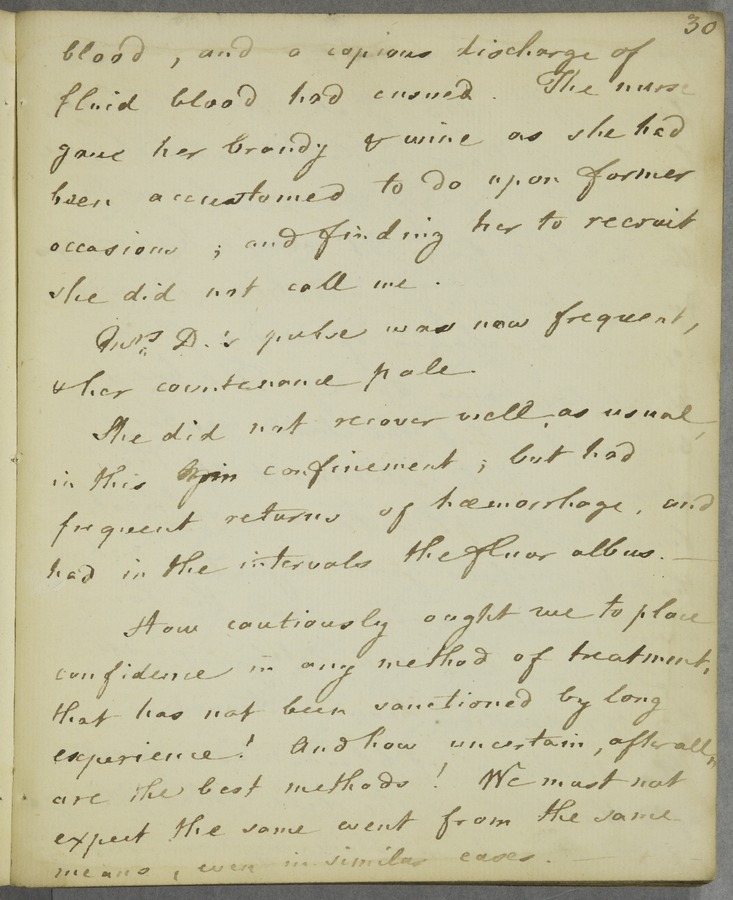 30
blood, and a copious discharge of
fluid blood had ensued. The nurse
gave her brandy & wine as she had
been accustomed to do upon former
occasions; and finding her to recruit
she did not call me.
Mrs. D.'s pulse was now frequent,
& her countenance pale.
She did not recover well, as usual,
in this confinement; but had
frequent returns of hæmorrhage, and
had in the intervals the fluor albus. —
How cautiously ought we to place
confidence in any method of treatment,
that has not been sanctioned by long
experience! And how uncertain, after all,
are the best methods! We must not
expect the same event from the same
means, even in similar cases. —